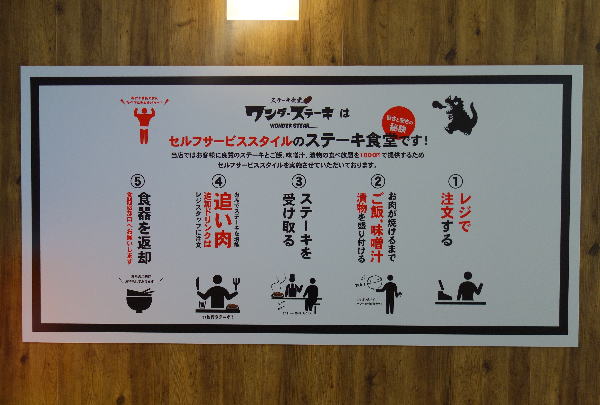 ステーキ食堂
ワンダーステーキは
WONDER STEAK
セルフサービススタイルのステーキ食堂です!
当店ではお客様に良質のステーキとご飯、味噌汁、漬物の食べ放題を1000円で提供するため
セルフサービススタイルを実施させていただいております。
①
レジで
注文する
②
お肉が焼けるまで
ご飯、味噌汁
漬物を盛り付ける
③
ステーキを
受け取る
④
追い肉
追加ドリンクは
レジスタッフに注文
⑤
食器を返却